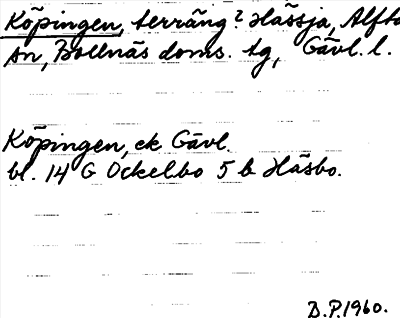 Köpingen, terräng? Hässja, Alfta
sn, Bollnäs doms. tg, Gävl. l.
Köpingen, ek Gävl.
bl. 14 G Ockelbo 5 b Häsbo.
D.P. 1960.